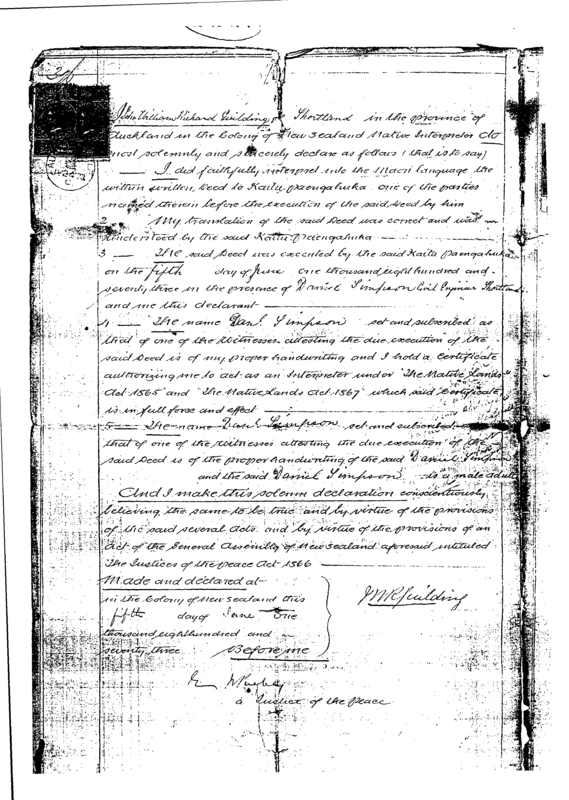 John William Richard Guilding of Shortland in the province of
Auckland in the Colony of New Zealand Native Interpreter do
most solemnly and sincerely declare as follows (that is to say)
— I did faithfully interpret into the Maori language the
within written Deed to Kaitu Paengahuka one of the parties
named therein before the execution of the said Deed by him
2 My translation of the said Deed was correct and was
understood by the said Kaitu Paengahuka —
3 — The said Deed was executed by the said Kaitu Paengahuka
on the fifth day of June one thousand eight hundred and
seventy three in the presence of Daniel Simpson Civil Engineer Shortland
and me this declarant —
4 — The name Danl. Simpson set and subscribed as
that of one of the witnesses attesting the due execution of the
said Deed is of my proper handwriting and I hold a certificate
authorizing me to act as an Interpreter under "The Native Lands
Act 1865" and "The Native Lands Act 1867" which said certificate
is in full force and effect
5 — The name Danl Simpson set and subscribed
that of one of the witnesses attesting the due execution of the
said Deed is of the proper handwriting of the said Daniel Simpson
and the said Daniel Simpson is a male adult
And I make this solemn declaration conscientiously
believing the same to be true and by virtue of the provisions
of the said several Acts and by virtue of the provisions of an
Act of the General Assembly of New Zealand aforesaid intituled
The Justices of the Peace Act 1866 —
Made and declared at
in the Colony of New Zealand this
fifth day of June one
thousand eight hundred and
seventy three Before me
JWRGuilding
a Justice of the Peace